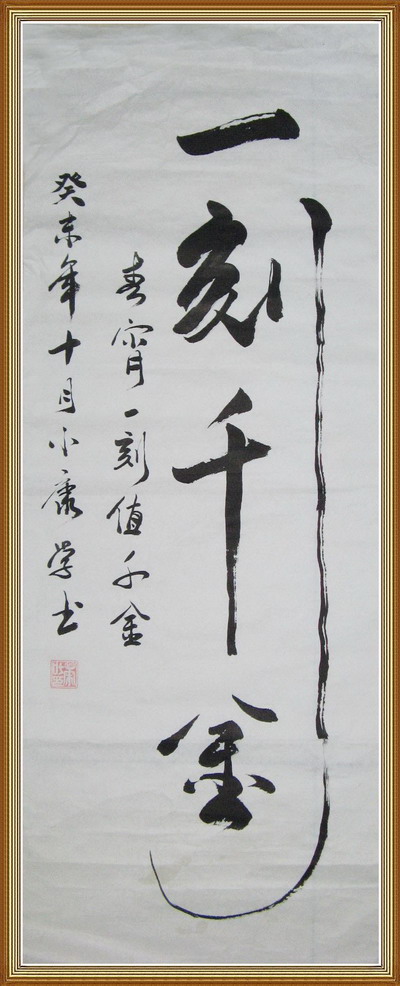 一刻千金
春宵一刻值千金
癸未年十月小康学书